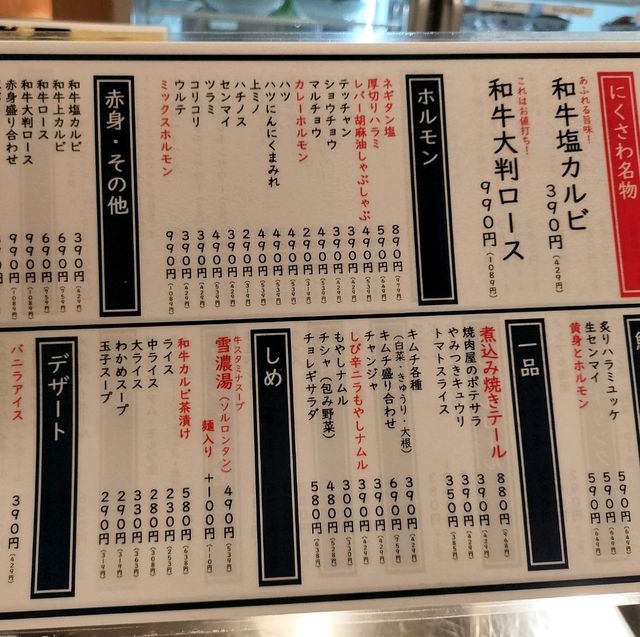 にくさわ名物
あふれる旨味!
和牛塩カルビ 390円(429円)
これはお値打ち!
和牛大判ロース 990円(1089円)
ホルモン
ネギタン塩 890円(979円)
厚切りハラミ 590円(649円)
レバー胡麻油しゃぶしゃぶ 490円
テッチャン 390円
ショウチョウ 390円
マルチョウ 490円
カレーホルモン 290円
ハツ 490円
ハツにんにくまみれ 490円
上ミノ 490円
ハチノス 290円
センマイ 390円
ツラミ 490円
コリコリ 390円
ウルテ 390円
ミックスホルモン 990円(1089円)
赤身・その他
和牛塩カルビ 390円(429円)
和牛上カルビ 690円(759円)
和牛ロース 690円(759円)
和牛大判ロース 990円(1089円)
赤身盛り合わせ 990円(1089円)
炙りハラミユッケ 590円(649円)
生センマイ 590円(649円)
黄身とホルモン 590円(649円)
一品
煮込み焼きテール 880円(968円)
焼肉屋のポテサラ 390円(429円)
やみつきキュウリ 390円(429円)
トマトスライス 350円(385円)
キムチ各種 390円(429円)
(白菜・きゅうり・大根)
キムチ盛り合わせ 690円(759円)
チャンジャ 390円(429円)
しび辛ニラもやしナムル 390円(429円)
もやしナムル 300円(330円)
チシャ(包み野菜) 480円(528円)
チョレギサラダ 580円(638円)
しめ
牛スタミナスープ
雪濃湯(ソルロンタン) 490円(539円)
麺入り +100円(110円)
和牛カルビ茶漬け 580円(638円)
ライス 230円(253円)
中ライス 280円(308円)
大ライス 330円(363円)
わかめスープ 290円(319円)
玉子スープ 290円(319円)
デザート
バニラアイス 390円(429円)